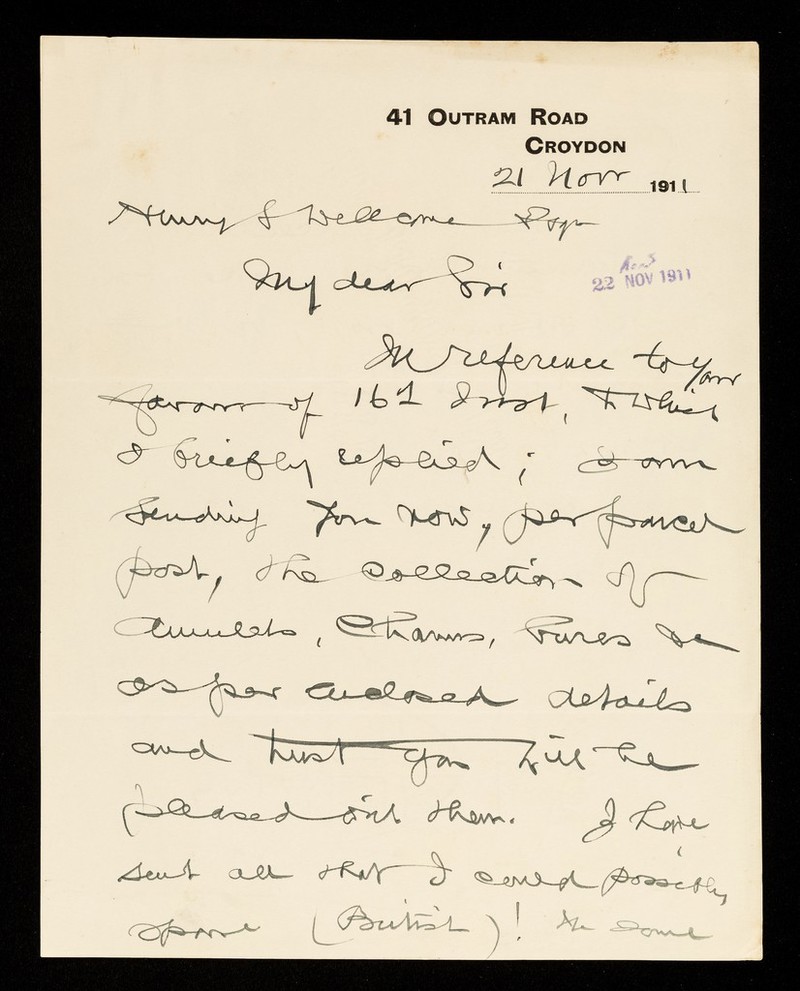 41 OUTRAM ROAD
CROYDON
21 Novr 1911
Henry S Wellcome Esqr
My dear Sir
22 NOV 1911
In reference to your
favour of 16th Inst, to which
I briefly replied; I am
sending you now, per parcel
post, the collection of
Amulets, Charms, Cures &c
as per enclosed details
and trust you will be
pleased with them. I have
sent all that I could possibly
spare (British)! The same